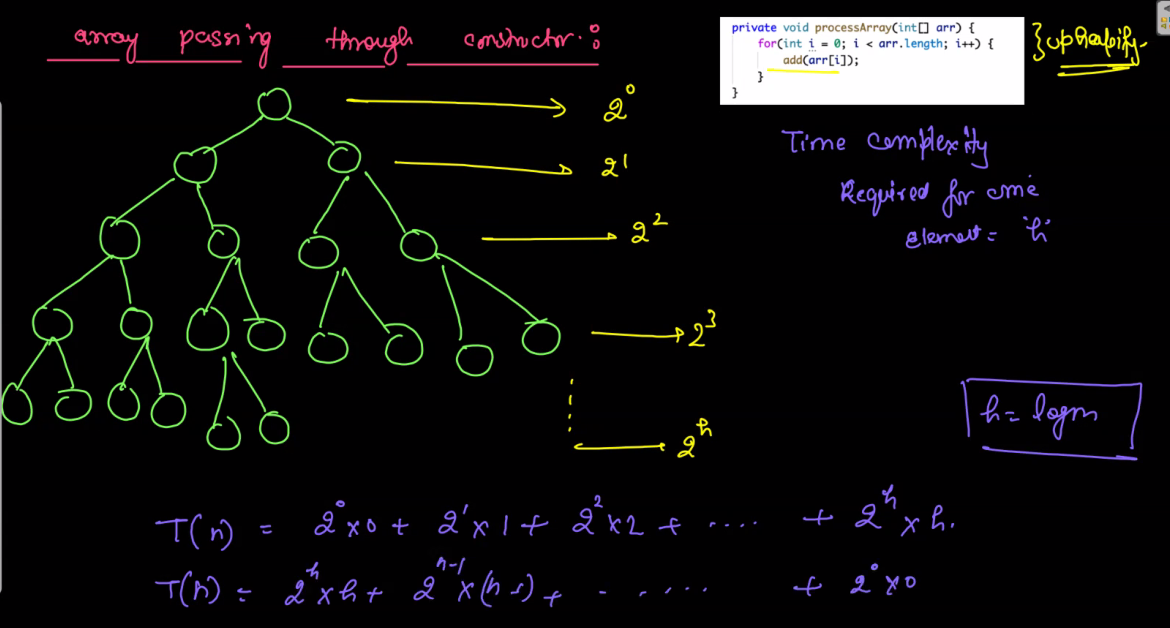 array passing through constructor:
private void processArray(int[] arr) {
for(int i = 0; i < arr.length; i++) {
add(arr[i]);
}
}
} upheapify
2⁰
2¹
2²
2³
2ʰ
Time complexity
Required for one
element = 'h'
h = logn
T(n) = 2⁰x0 + 2¹x1 + 2²x2 + .... + 2ʰ x h.
T(n) = 2ʰxh + 2ʰ⁻¹x(h-1) + ...... + 2⁰x0